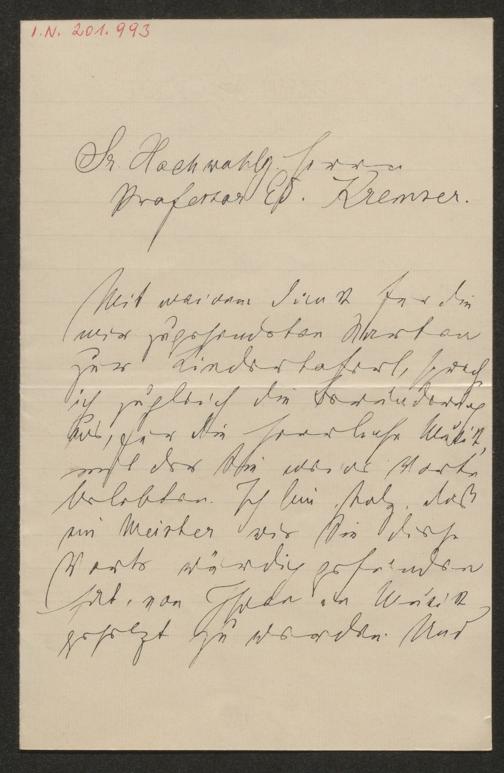 I.N. 201.993
Sr. Hochwohlg. Herrn
Professor Ed. Kremser.
Mit meinem Dank für die
mir zugesendeten Karten
zur Liedertafel, sprech
ich zugleich die Bewunderung
aus, für die herrliche Musik,
mit der Sie meine Worte
belebten. Ich bin stolz, daß
ein Meister wie Sie diese
Worte würdig gefunden
hat, von Ihnen in Musik
gesetzt zu werden. Und